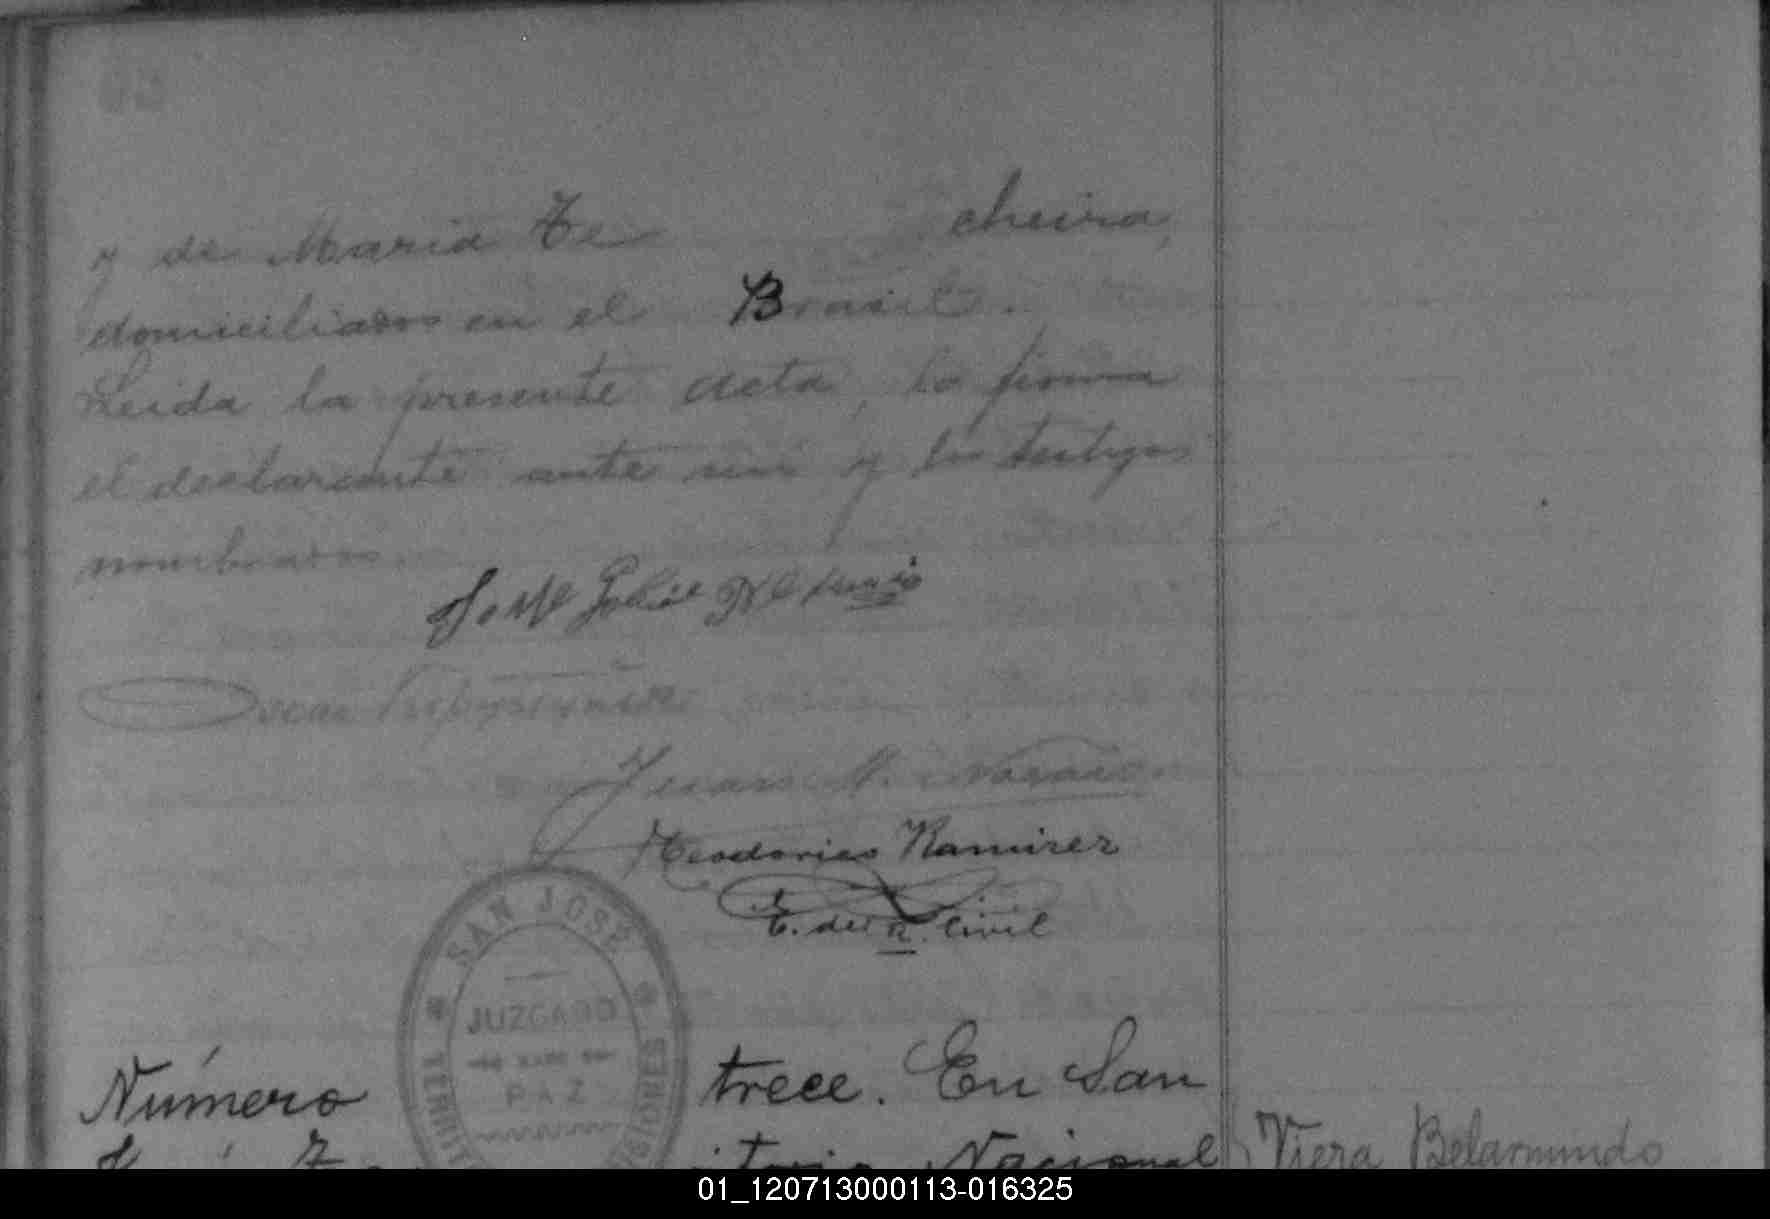 y de Maria Te cheira,
domiciliados en el Brasil.
Leida la presente acta, la firma
el declarante ante mi y los testigos
nombrados.
Oscar
Juan
Teodorico Ramirez
E. del R. Civil
SAN JOSE
JUZGADO
DE
PAZ
TERRIT MISIONES
Número trece. En San
José, Territorio Nacional
Viera Belarmindo
01_120713000113-016325